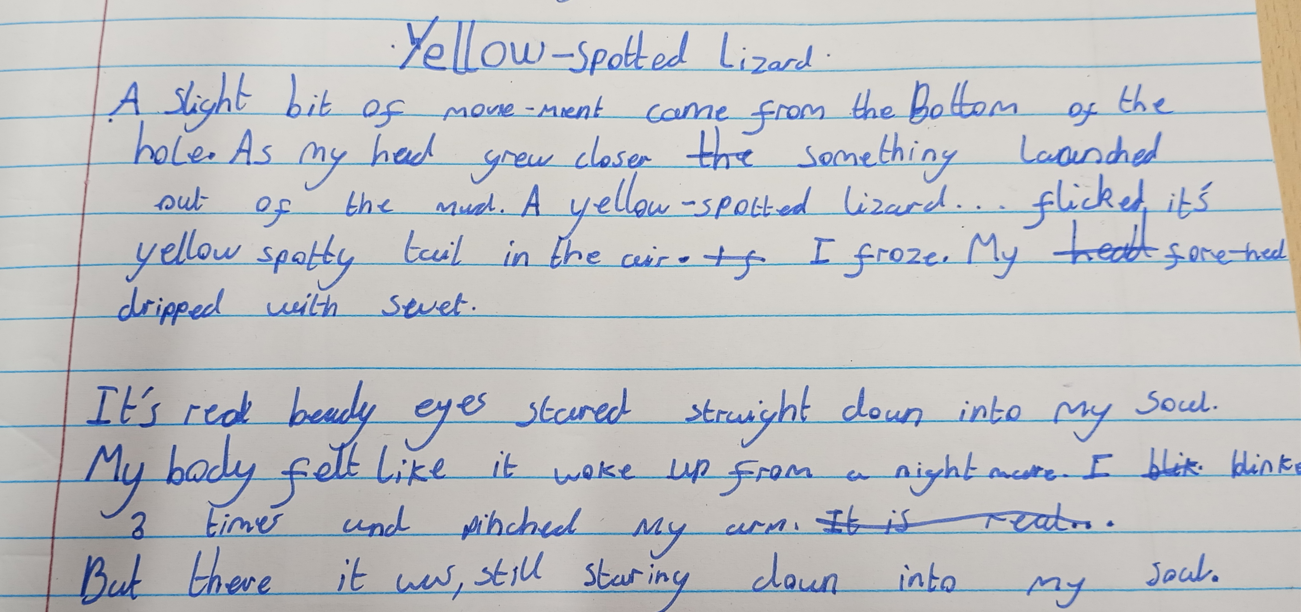 Yellow-spotted Lizard.
A slight bit of move-ment came from the Bottom of the
hole. As my head grew closer the something launched
out of the mud. A yellow-spotted lizard... flicked it's
yellow spotty tail in the air. I froze. My fore-hed
dripped with swet.
It's red beady eyes stared straight down into my soul.
My body felt like it woke up from a nightmare. I blik blinke
3 times and pinched my arm. It is real...
But there it was, still staring down into my soul.